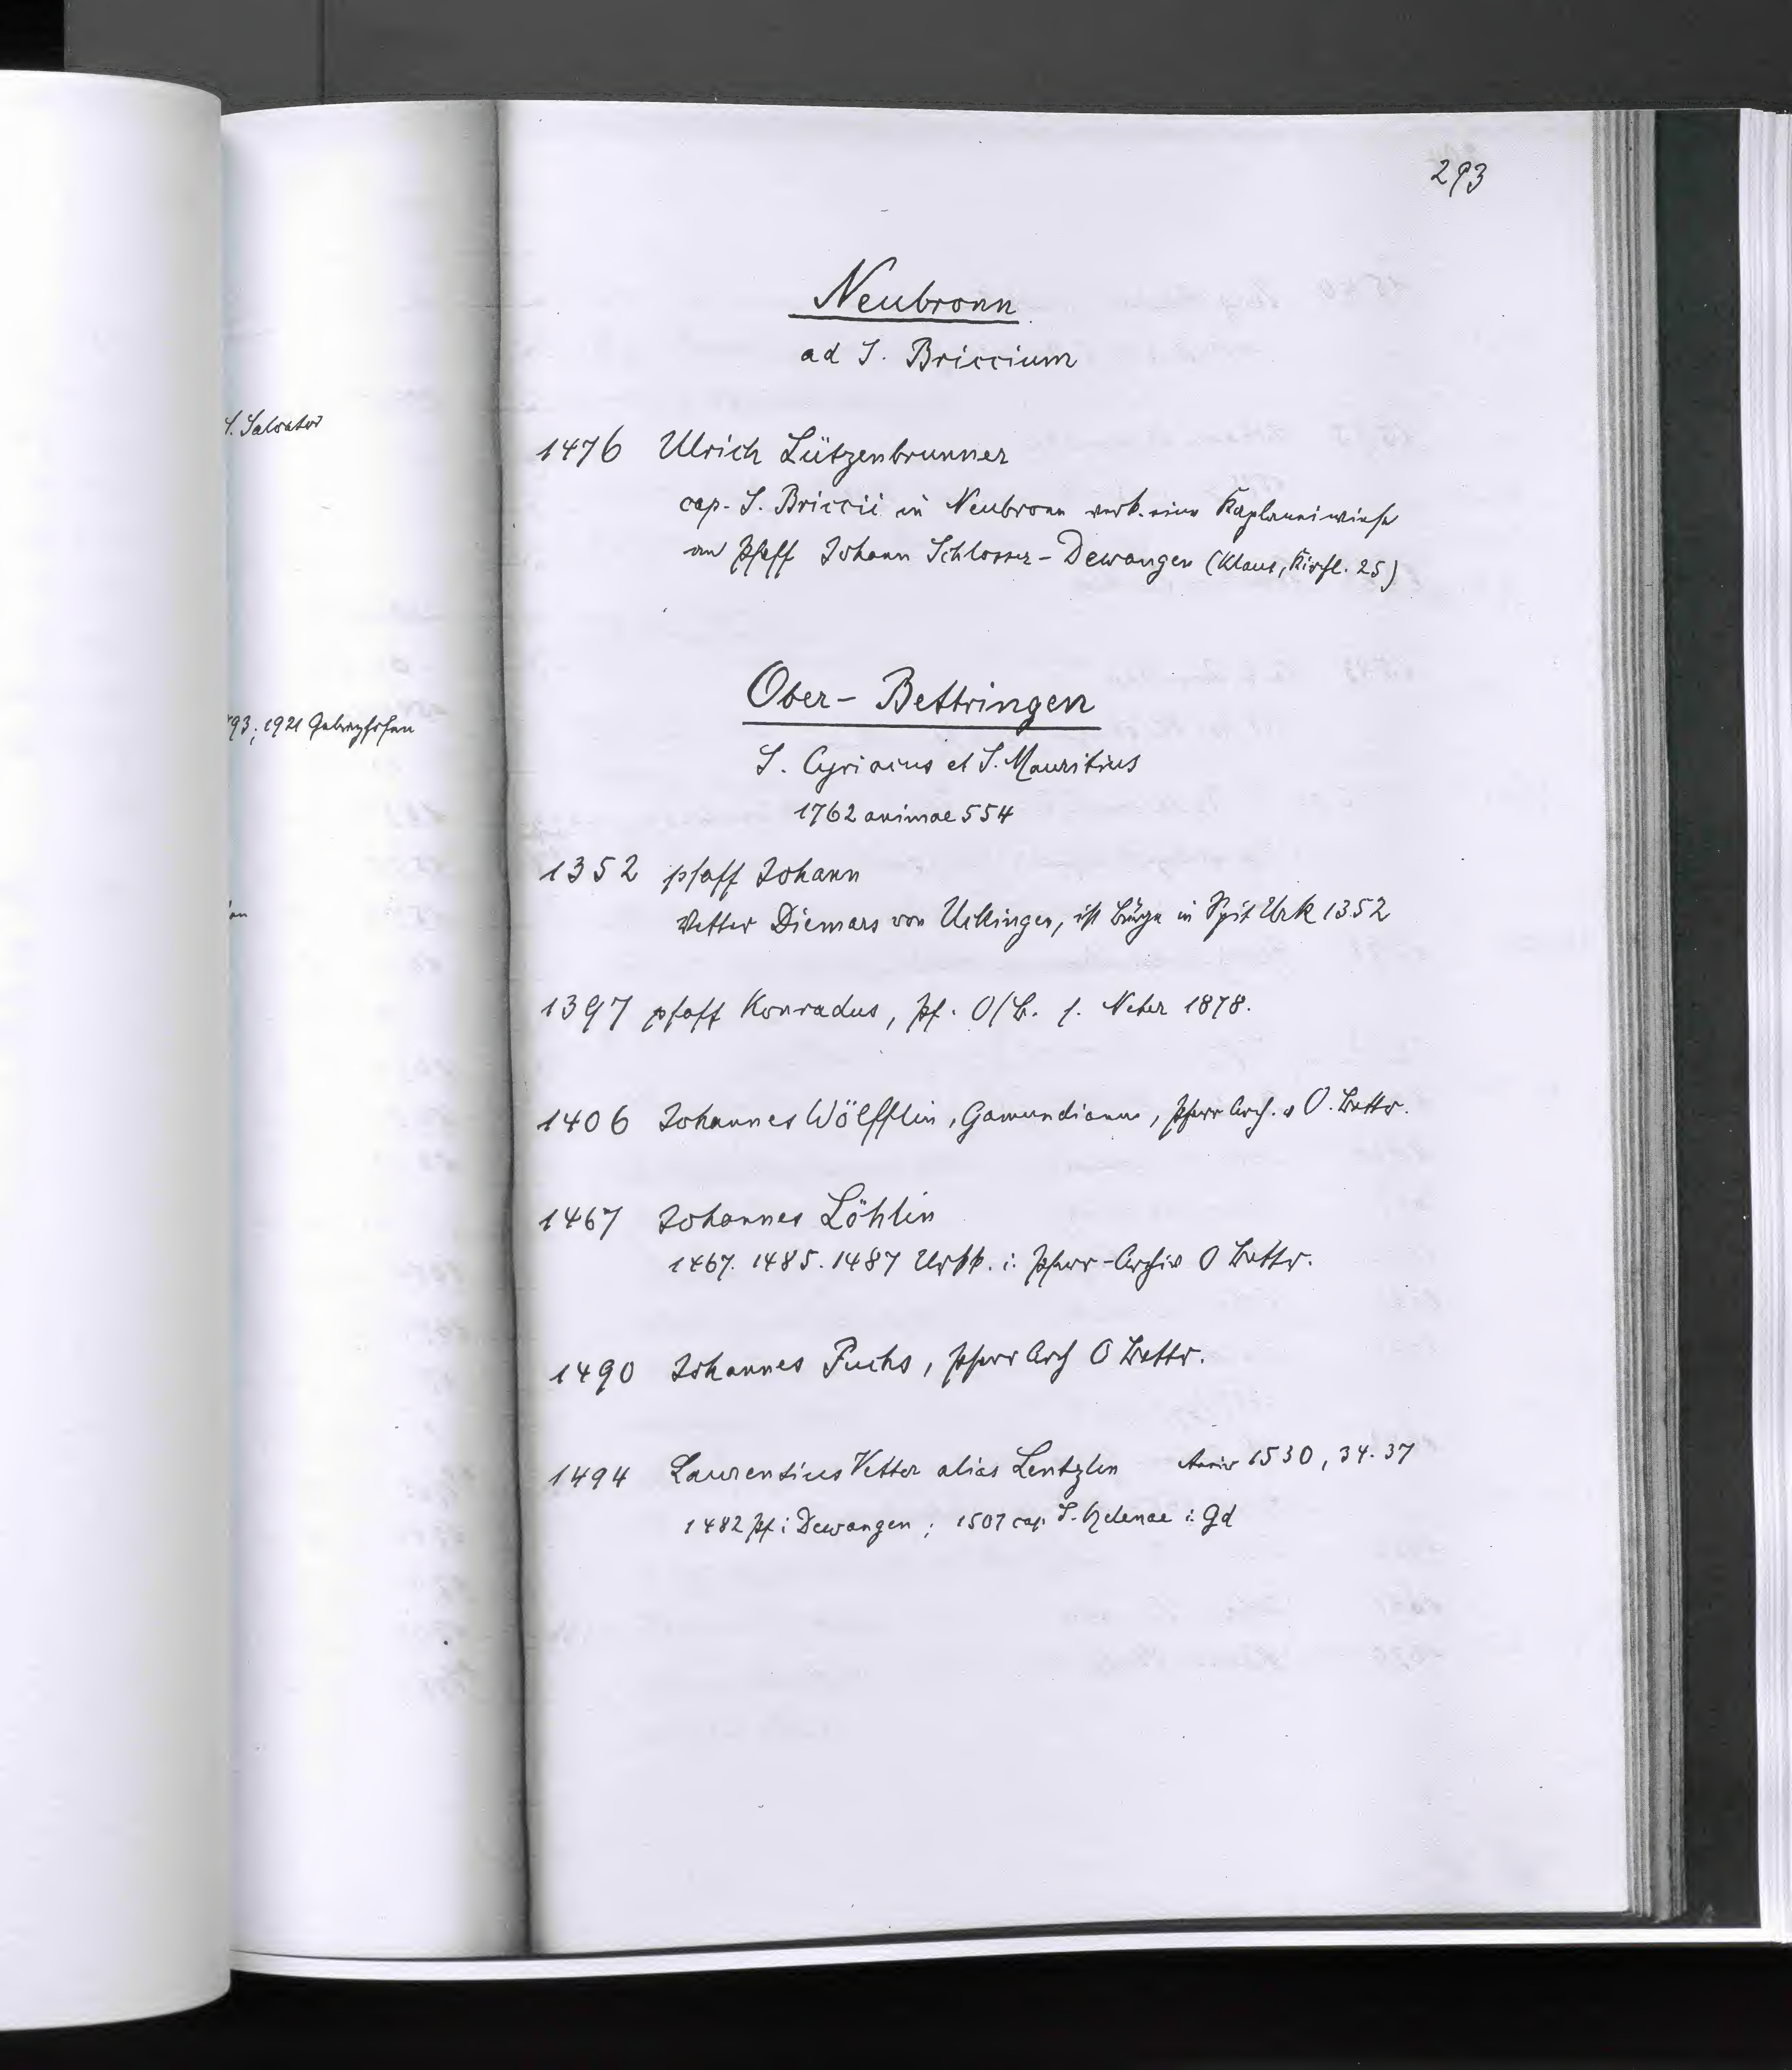 293
Neubronn
ad S. Briccium
S. Salvator
1476 Ulrich Lützenbrunner
cap. S. Briccii in Neubronn verk. eine Kaplaneiwiese
an Pfaff Johann Schlosser - Dewangen (Klaus, Kirchl. 25)
Ober - Bettringen
93; 1921
S. Cyriacus et S. Mauritius
1762 animae 554
1352 pfaff Johann
Vetter Diemars von Uckingen, ist Bürge in Spit Urk 1352
1397 pfaff Konradus, Pf. O/B. s. Neher 1878.
1406 Johannes Wölfflin, Gamundianus, Pfarr Arch. v O. Bettr.
1467 Johannes Löhlin
1467. 1485. 1487 Urkk. i. Pfarr-Archiv O Bettr.
1490 Johannes Fuchs, Pfarr Arch O Bettr.
1494 Laurentius Vetter alias Lentzlin 1530, 34. 37
1482 Pf i Dewangen; 1507 cap. S. Helenae i. Gd